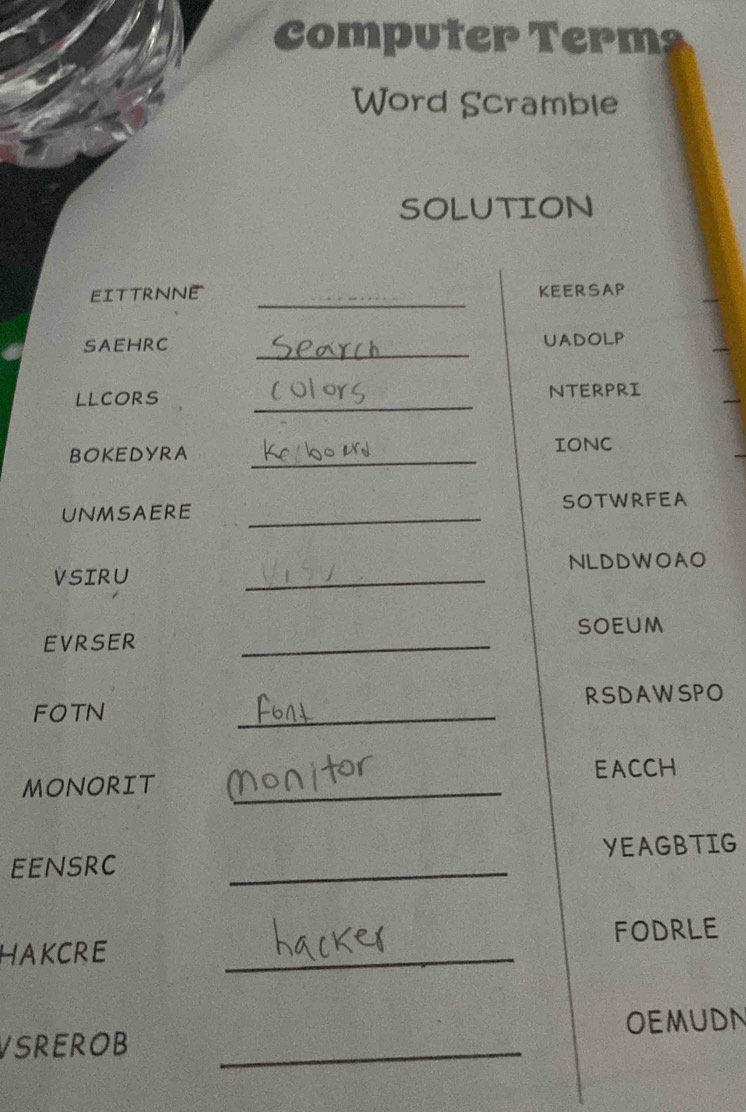 Computer Terms
Word Scramble
SOLUTION
EITTRNNE
KEERSAP
SAEHRC
Search
UADOLP
LLCORS
colors
NTERPRI
BOKEDYRA
IONC
UNMSAERE
SOTWRFEA
VSIRU
Visu
NLDDWOAO
EVRSER
SOEUM
FOTN
Font
RSDAWSPO
MONORIT
monitor
EACCH
EENSRC
YEAGBTIG
HAKCRE
hacker
FODRLE
VSREROB
OEMUDN